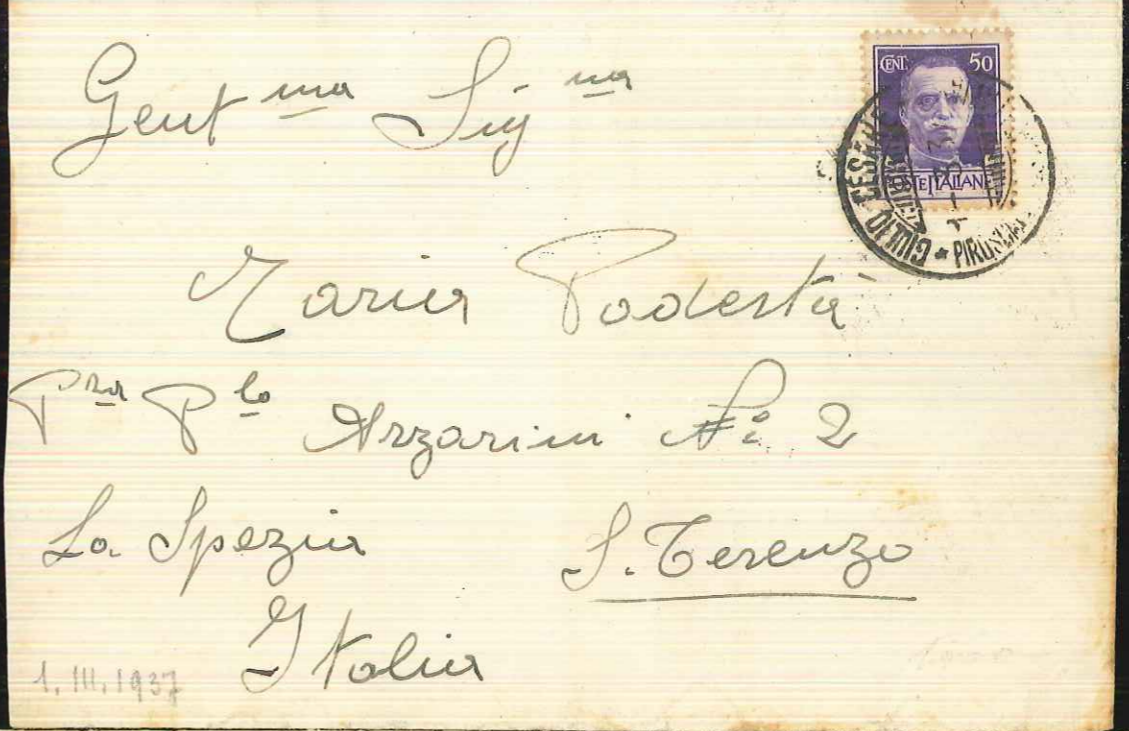 Gent ma Sig na
CENT. 50
POSTE ITALIANE
GIULIO CESARE * PIROSCAFO
Maria Podestà
P za P lo Azzarini No 2
La Spezia S. Terenzo
Italia
1. III. 1937